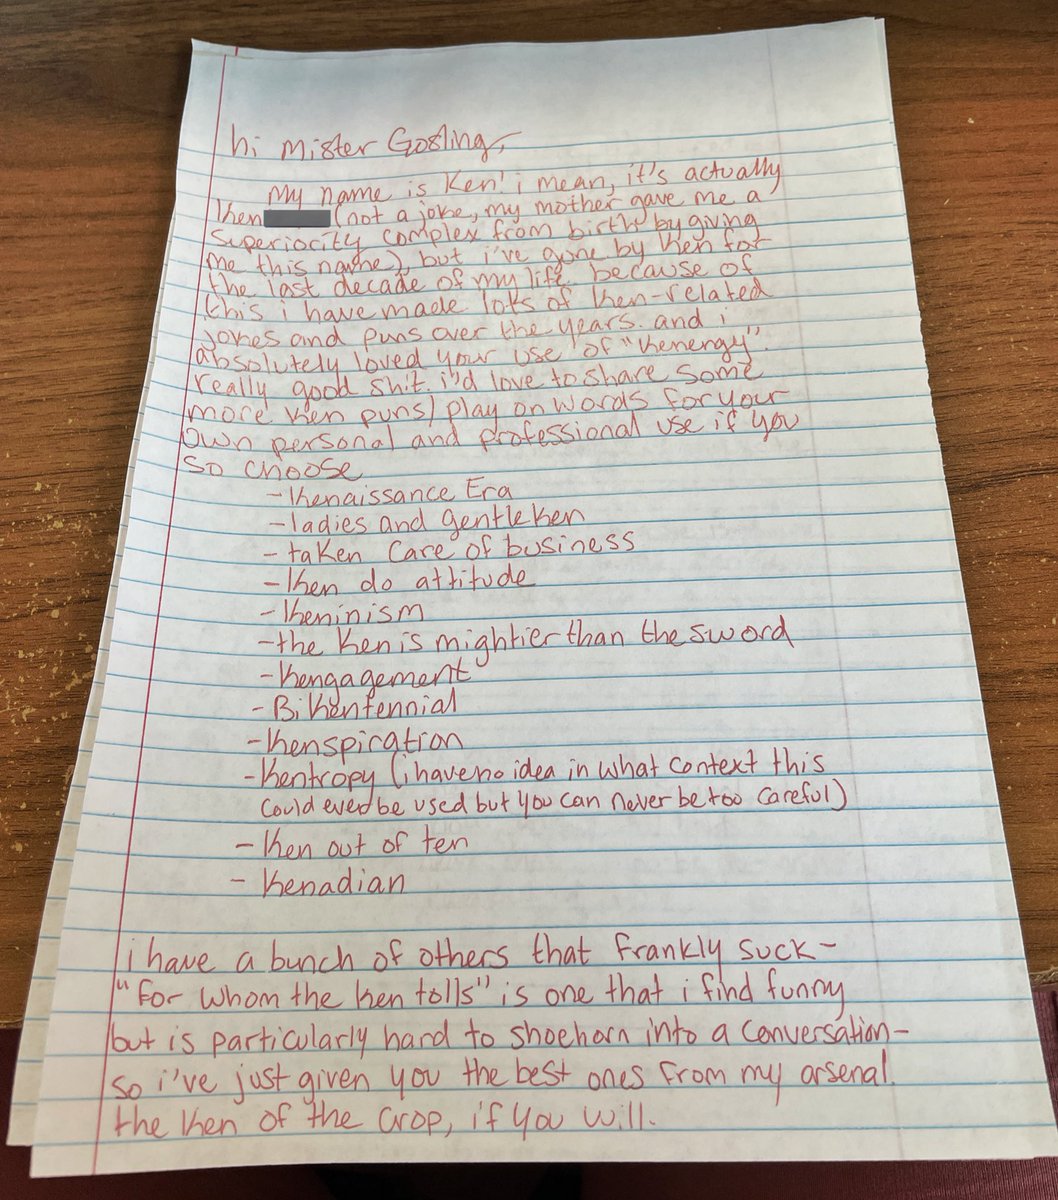 hi Mister Gosling,
My name is Ken! i mean, it's actually
Ken (not a joke, my mother gave me a
superiority complex from birth by giving
me this name), but i've gone by Ken for
the last decade of my life. because of
this i have made lots of Ken-related
jokes and puns over the years. and i
absolutely loved your use of "Kenergy"
really good shit. i'd love to share some
more Ken puns/play on words for your
own personal and professional use if you
so choose
- Kenaissance Era
- ladies and gentleken
- taken care of business
- Ken do attitude
- Keninism
- the Ken is mightier than the sword
- Kengagement
- BiKentennial
- Kenspiration
- Kentropy (i have no idea in what context this
could ever be used but you can never be too careful)
- Ken out of ten
- Kenadian
i have a bunch of others that frankly suck -
"for whom the Ken tolls" is one that i find funny
but is particularly hard to shoehorn into a conversation -
so i've just given you the best ones from my arsenal.
the Ken of the crop, if you will.